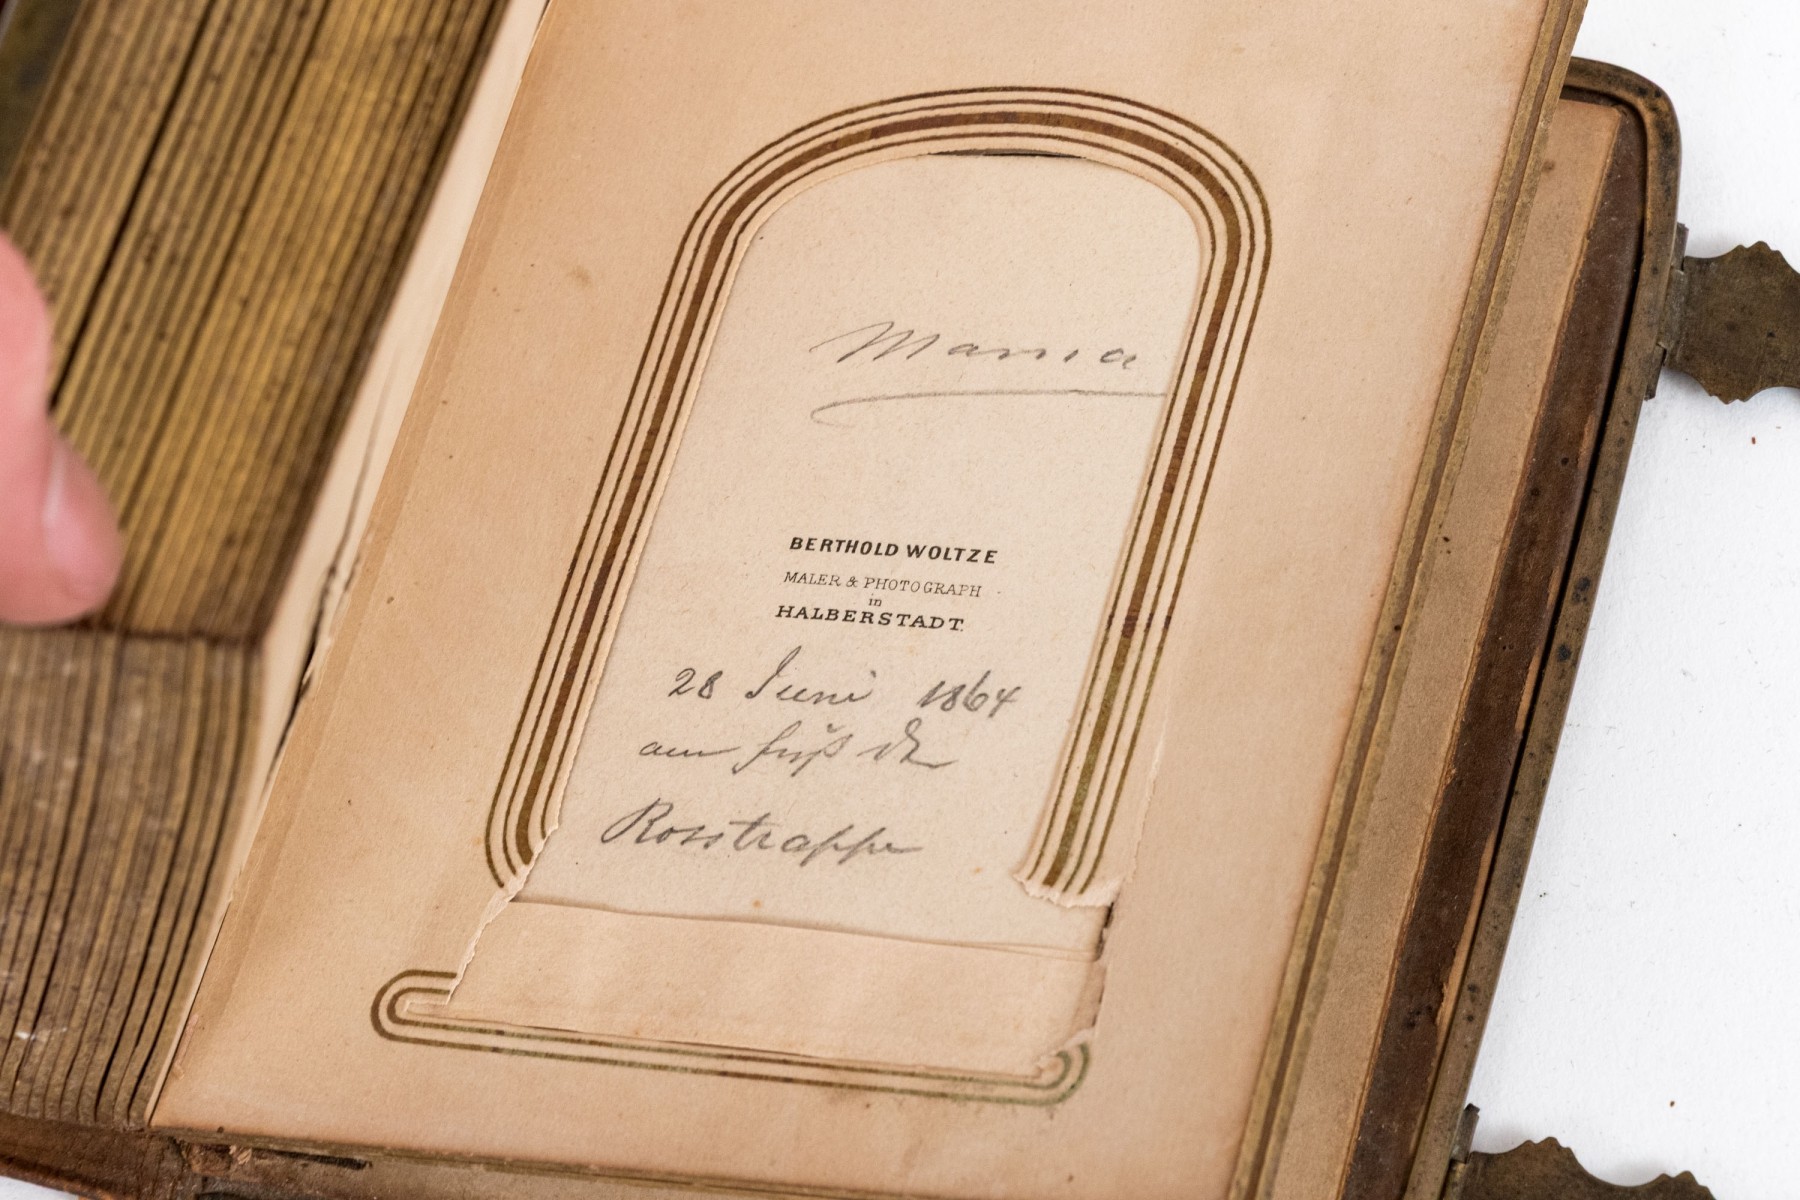 Mama
BERTHOLD WOLTZE
MALER & PHOTOGRAPH
in
HALBERSTADT.
28 Juni 1864
am Fuß der
Rosstrappe